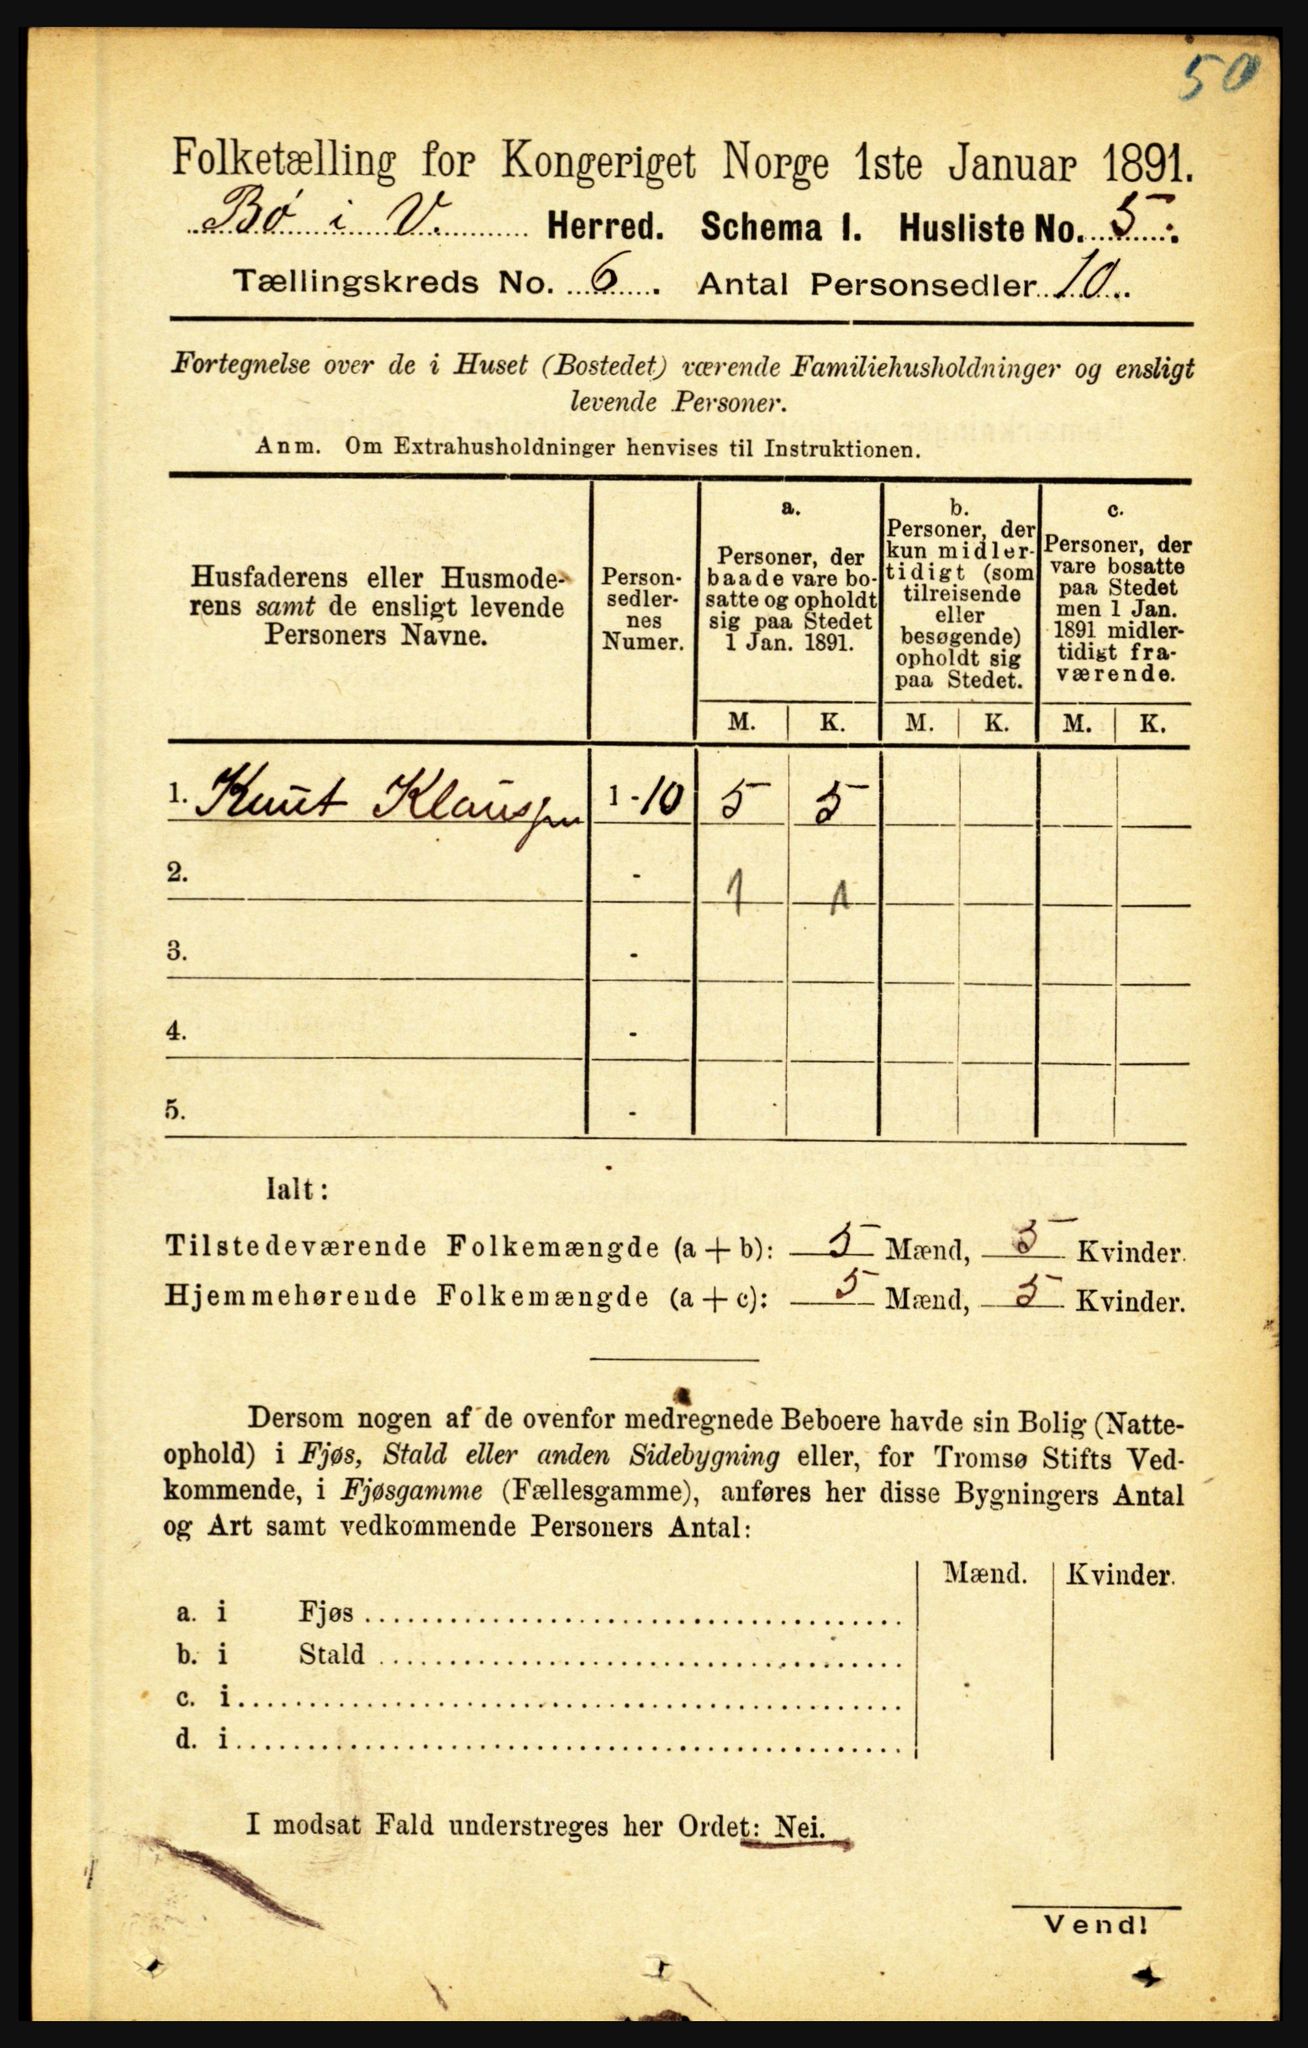 50
Folketælling for Kongeriget Norge 1ste Januar 1891.
Bø i V. Herred. Schema I. Husliste No. 5.
Tællingskreds No. 6. Antal Personsedler 10.
Fortegnelse over de i Huset (Bostedet) værende Familiehusholdninger og ensligt
levende Personer.
Anm. Om Extrahusholdninger henvises til Instruktionen.
Husfaderens eller Husmode-
rens samt de ensligt levende
Personers Navne.
Person-
sedler-
nes
Numer.
a.
Personer, der
baade vare bo-
satte og opholdt
sig paa Stedet
1 Jan. 1891.
b.
Personer, der
kun midler-
tidigt (som
tilreisende
eller
besøgende)
opholdt sig
paa Stedet.
c.
Personer, der
vare bosatte
paa Stedet
men 1 Jan.
1891 midler-
tidigt fra-
værende.
M. K. M. K. M. K.
1. Knut Klaussen 1 - 10 5 5
2. - 1 1
3. -
4. -
5. -
Ialt:
Tilstedeværende Folkemængde (a + b): 5 Mænd, 5 Kvinder.
Hjemmehørende Folkemængde (a + c): 5 Mænd, 5 Kvinder.
Dersom nogen af de ovenfor medregnede Beboere havde sin Bolig (Natte-
ophold) i Fjøs, Stald eller anden Sidebygning eller, for Tromsø Stifts Ved-
kommende, i Fjøsgamme (Fællesgamme), anføres her disse Bygningers Antal
og Art samt vedkommende Personers Antal:
Mænd. Kvinder.
a. i Fjøs
b. i Stald
c. i
d. i
I modsat Fald understreges her Ordet: Nei.
Vend!